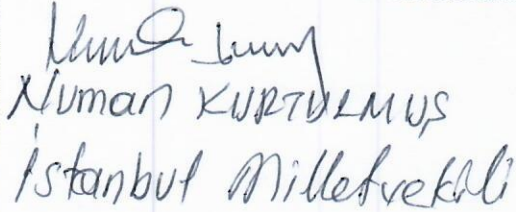 Numan KURTULMUŞ
İstanbul Milletvekili